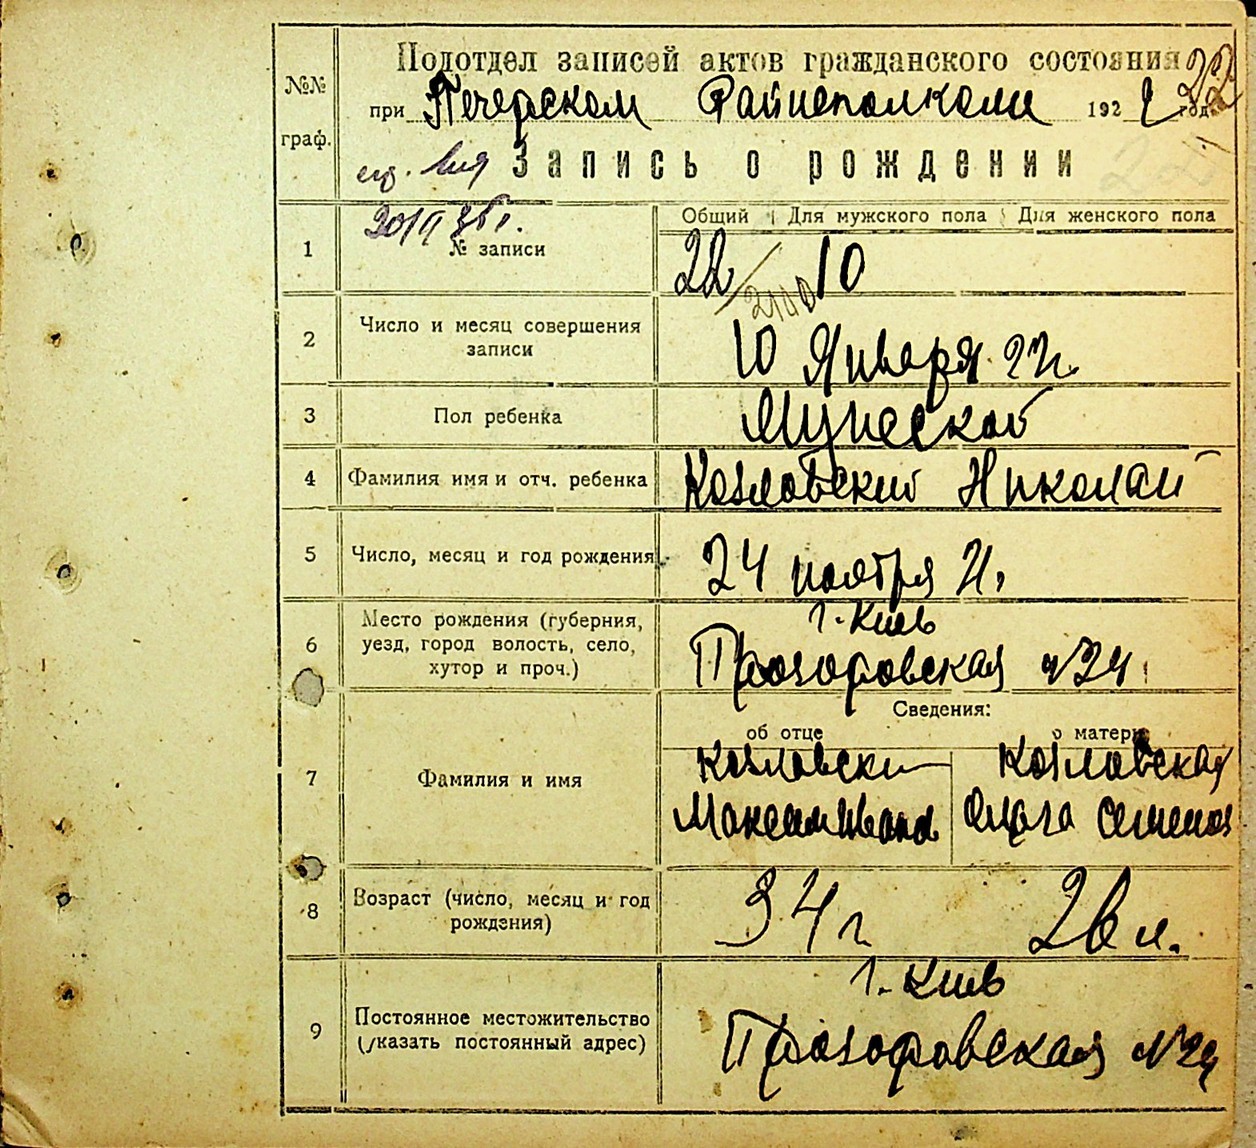 №№ граф.
Подотдел записей актов гражданского состояния
при Печерском Райисполкоме 1922 год
22
Запись о рождении
Общий Для мужского пола Для женского пола
1 № записи 22 10
2 Число и месяц совершения записи 10 Января 22 г.
3 Пол ребенка Мужеской
4 Фамилия имя и отч. ребенка Козловский Николай
5 Число, месяц и год рождения 24 ноября 21.
6 Место рождения (губерния, уезд, город волость, село, хутор и проч.)
г. Киев
Прозоровская №24
Сведения:
об отце о матери
7 Фамилия и имя
Козловский Козловская
Максим Иванов Ольга Семенов
8 Возраст (число, месяц и год рождения) 34 г. 26 л.
9 Постоянное местожительство (указать постоянный адрес)
г. Киев
Прозоровская №24